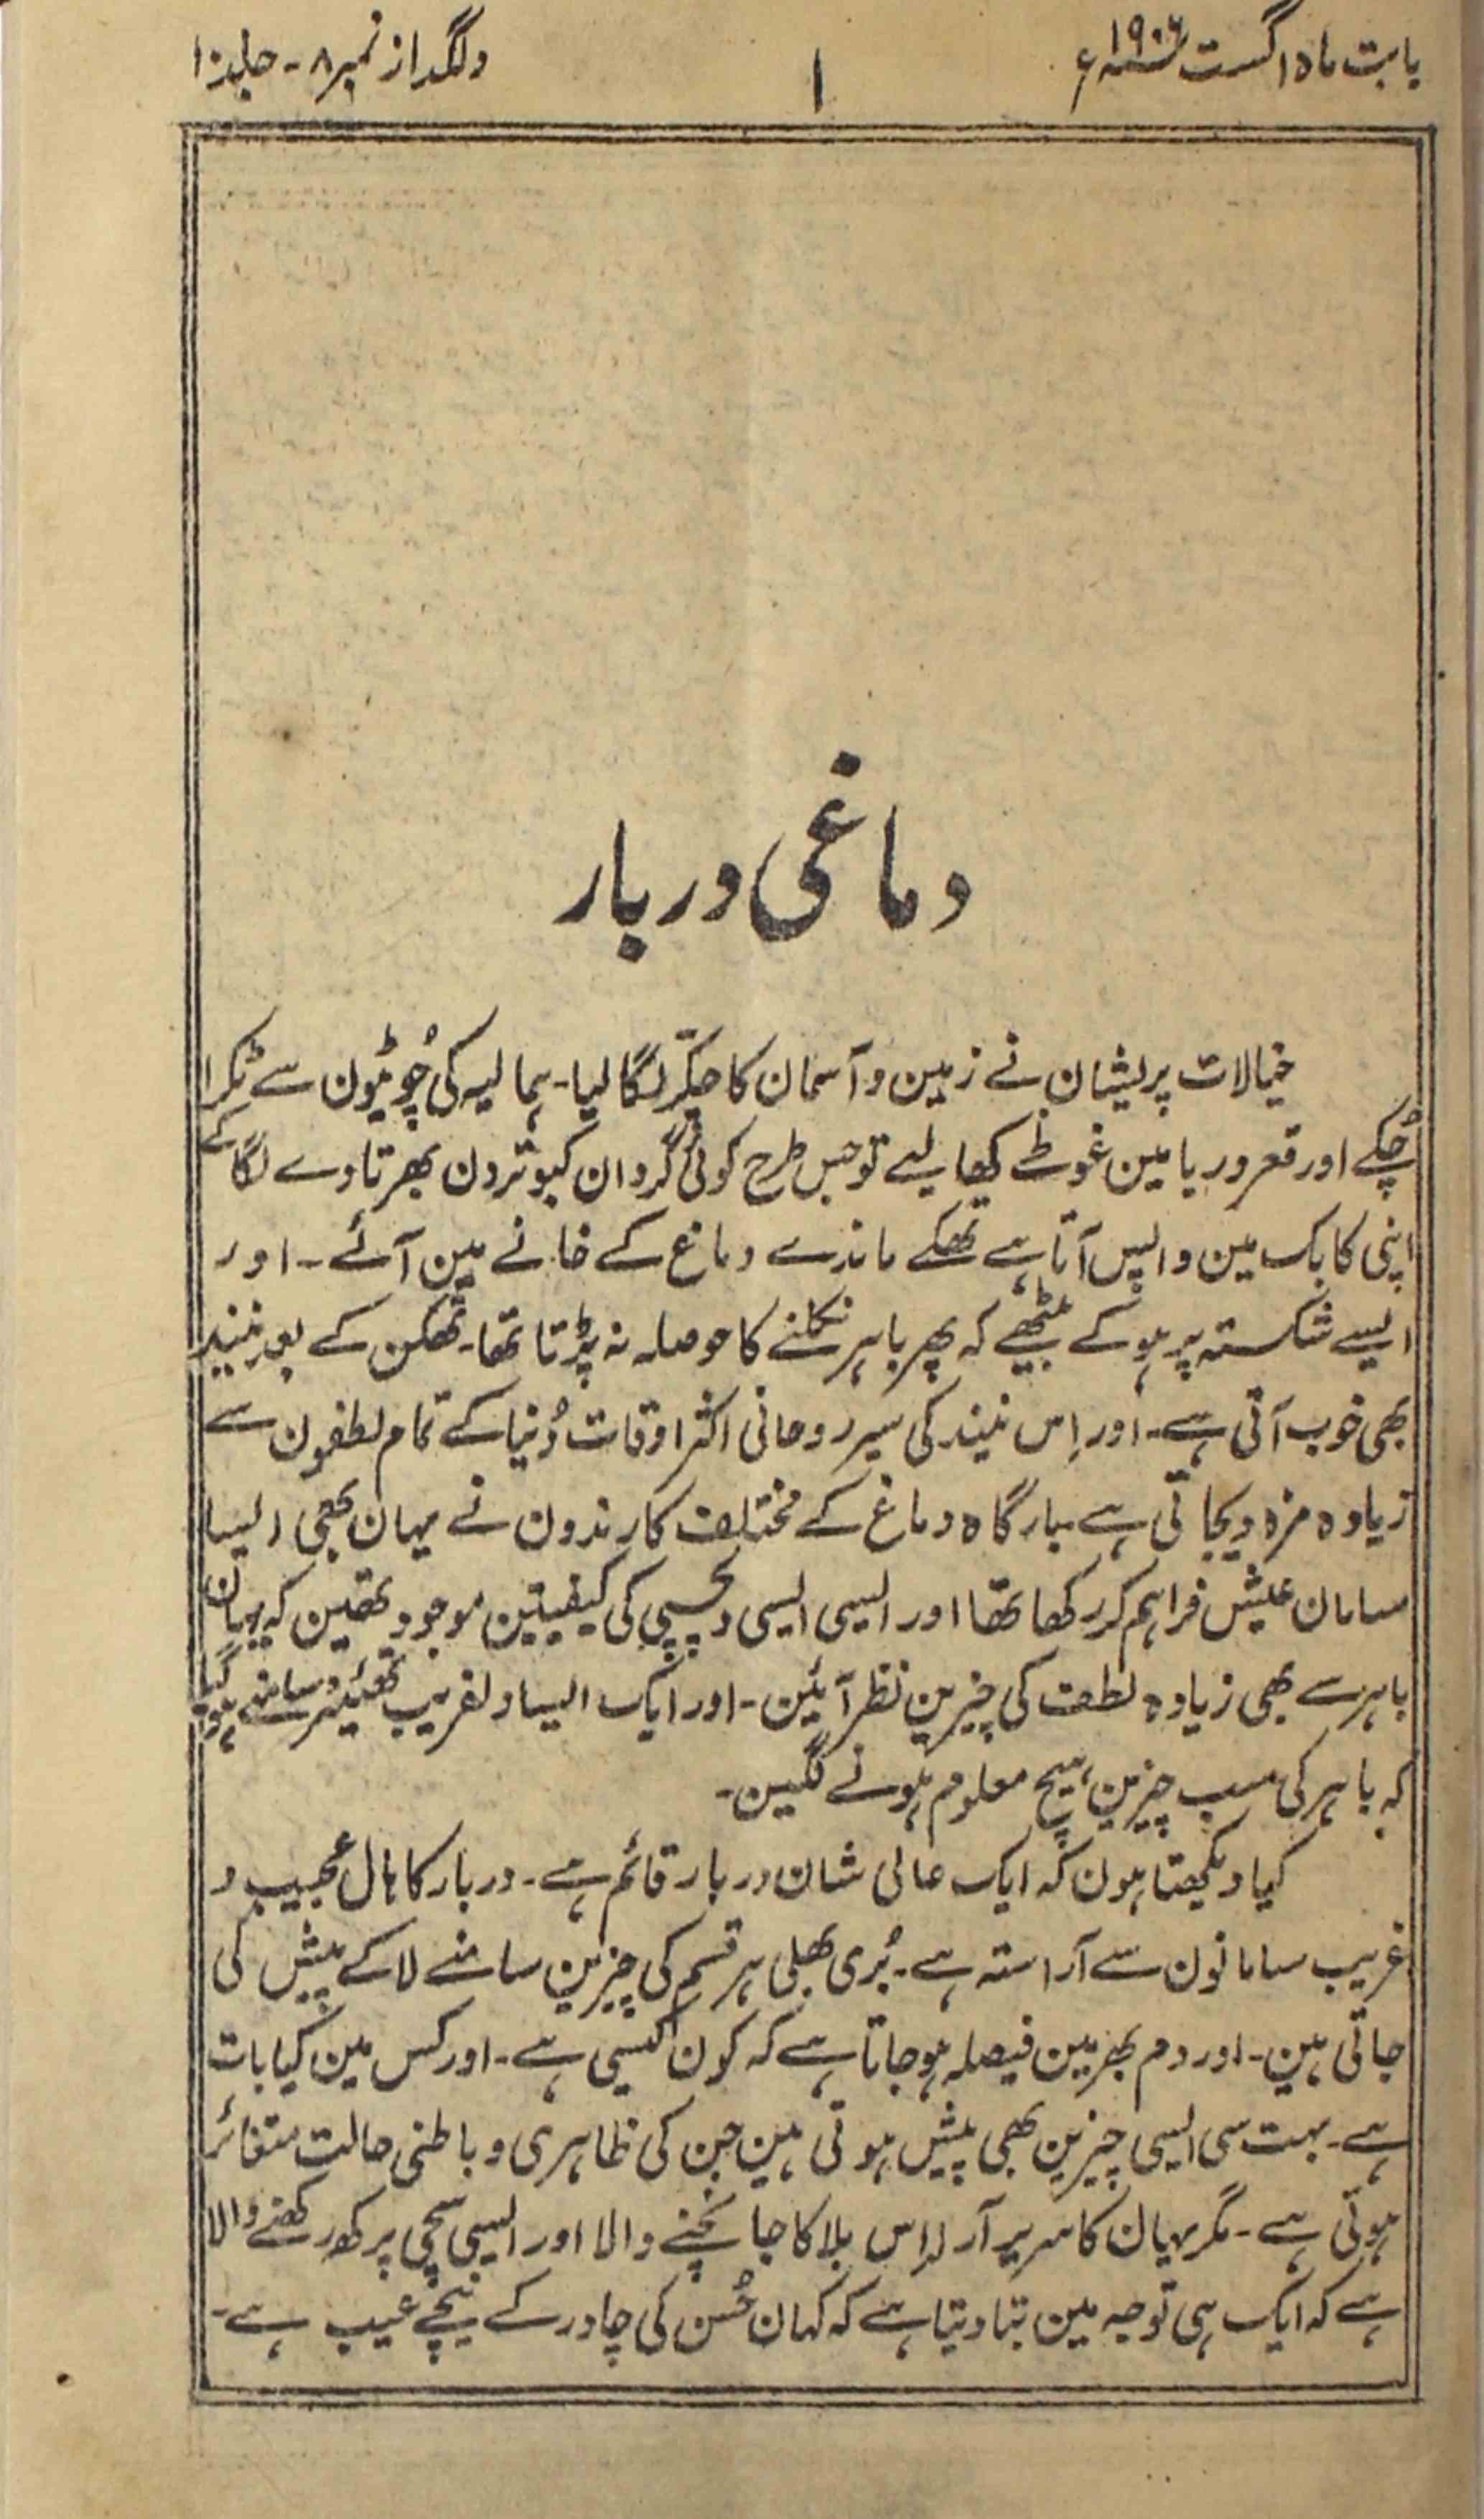 بابت ماہ اگست ۱۹۰۶ء
۱
دلگداز نمبر ۸ - جلد ۱۰
دماغی دربار
خیالات پریشان نے زمین و آسمان کا چکّر لگا لیا - ہمالیہ کی چُوٹیون سے ٹکرا
چُکے اور قعر دریا مین غوطے کھا لیے تو جس طرح کوئی گردان کبوتر دن بھر تاوے لگا کے
اپنی کابک مین واپس آتا ہے تھکے ماندے دماغ کے خانے مین آئے - اور
ایسے شکستہ پر ہو کے بیٹھے کہ پھر باہر نکلنے کا حوصلہ نہ پڑتا تھا - تھکن کے بعد نیند
بھی خوب آتی ہے - اور اِس نیند کی سیر روحانی اکثر اوقات دُنیا کے تمام لطفون سے
زیادہ مزہ دیجاتی ہے - بارگاہ دماغ کے مختلف کارندون نے یہان بھی ایسا
سامان عیش فراہم کر رکھا تھا اور ایسی ایسی دلچسپی کی کیفیتین موجود تھین کہ یہان
باہر سے بھی زیادہ لطف کی چیزین نظر آئین - اور ایک ایسا دلفریب تھئیٹر سامنے ہو گیا
کہ باہر کی سب چیزین ہیچ معلوم ہونے لگین -
کیا دیکھتا ہون کہ ایک عالی شان دربار قائم ہے - دربار کا ہال عجیب و
غریب سامانون سے آراستہ ہے - بُری بھلی ہر قسم کی چیزین سامنے لا کے پیش کی
جاتی ہین - اور دم بھر مین فیصلہ ہو جاتا ہے کہ کون کیسی ہے - اور کس مین کیا بات
ہے - بہت سی ایسی چیزین بھی پیش ہوتی ہین جن کی ظاہری و باطنی حالت متغائر
ہوتی ہے - مگر یہان کا سریر آرا اِس بلا کا جانچنے والا اور ایسی سچی پرکھ رکھنے والا
ہے کہ ایک ہی توجہ مین بتا دیتا ہے کہ کہان حُسن کی چادر کے نیچے عیب ہے -